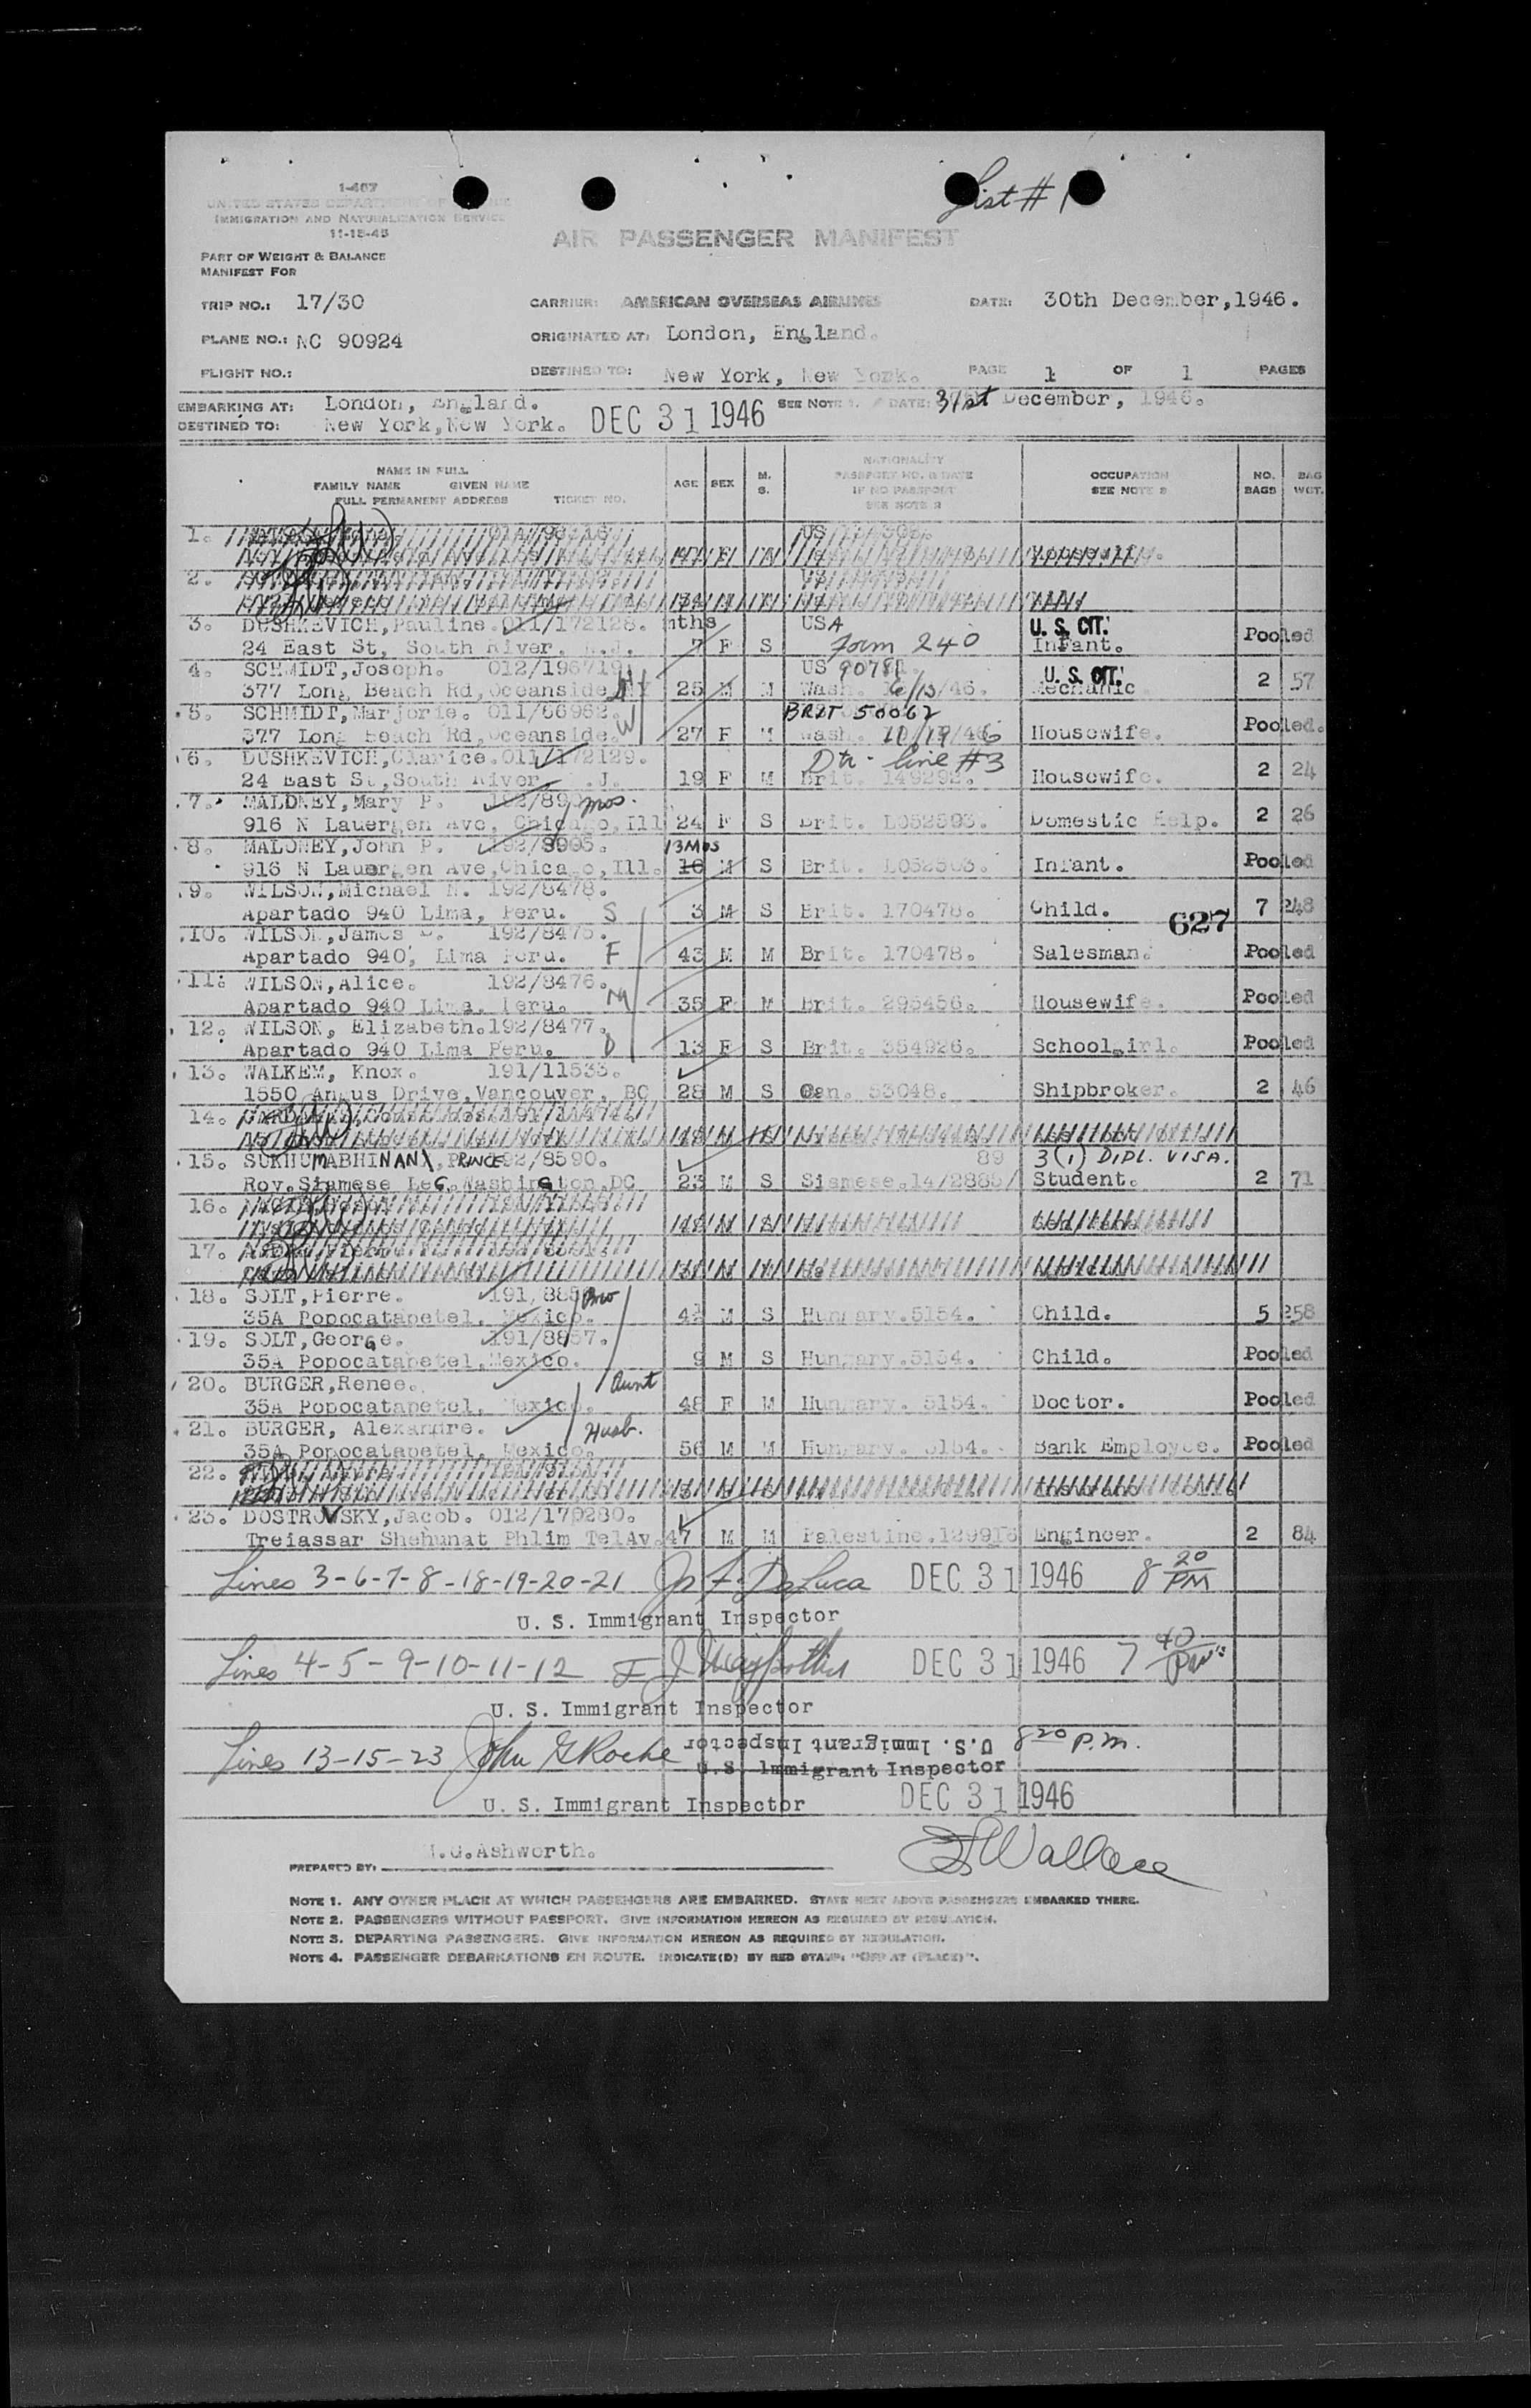 List # 1
1-467
UNITED STATES DEPARTMENT OF
IMMIGRATION AND NATURALIZATION SERVICE
11-15-45
AIR PASSENGER MANIFEST
PART OF WEIGHT & BALANCE
MANIFEST FOR
TRIP NO.: 17/30 CARRIER: AMERICAN OVERSEAS AIRLINES DATE: 30th December,1946.
PLANE NO.: NC 90924 ORIGINATED AT: London, England.
FLIGHT NO.: DESTINED TO: New York, New York. PAGE 1 OF 1 PAGES
EMBARKING AT: London, England. SEE NOTE 1. DATE: 31st December, 1946.
DESTINED TO: New York,New York. DEC 31 1946
NAME IN FULL
FAMILY NAME GIVEN NAME
FULL PERMANENT ADDRESS TICKET NO. AGE SEX M. S. NATIONALITY PASSPORT NO. & DATE IF NO PASSPORT SEE NOTE 2 OCCUPATION SEE NOTE 3 NO. BAGS BAG WGT.
1.
2.
3. DUSHKEVICH,Pauline.011/172128. mths USA U. S. CIT.
24 East St, South River, N.J. 7 F S Form 240 Infant. Pooled
4. SCHMIDT,Joseph. 012/196719 US 90781 U. S. CIT.
377 Long Beach Rd,Oceanside,NY 25 M M Wash. 6/13/46. Mechanic 2 57
5. SCHMIDT,Marjorie. 011/66982. BRIT 50062
377 Long Beach Rd,Oceanside. W 27 F M Wash. 10/19/46 Housewife. Pooled.
6. DUSHKEVICH,Clarice.011/172129. Dtr. line #3
24 East St,South River N.J. 19 F M Brit. 149292. Housewife. 2 24
7. MALONEY,Mary P. mos.
916 N Lauergen Ave, Chicago,Ill 24 F S Brit. L052503. Domestic Help. 2 26
8. MALONEY,John P. 192/8905. 13 Mos
916 N Lauergen Ave,Chicago,Ill. 10 M S Brit. L052503. Infant. Pooled
9. WILSON,Michael N. 192/8478.
Apartado 940 Lima, Peru. S 3 M S Brit. 170478. Child. 7 248
627
10. WILSON,James 192/8475.
Apartado 940, Lima Peru. F 43 M M Brit. 170478. Salesman. Pooled
11. WILSON,Alice. 192/8476.
Apartado 940 Lima, Peru. M 35 F M Brit. 295456. Housewife. Pooled
12. WILSON, Elizabeth.192/8477.
Apartado 940 Lima Peru. D 13 F S Brit. 354926. Schoolgirl. Pooled
13. WALKEM, Knox. 191/11533.
1550 Angus Drive,Vancouver, BC 28 M S Can. 53048. Shipbroker. 2 46
14.
15. SUKHUMABHINAN, PRINCE 192/8590. 89 3(1) DIPL. VISA.
Roy.Siamese Leg.Washington,DC 23 M S Siamese.14/2885/ Student. 2 71
16.
17.
18. SOLT,Pierre. Bro
35A Popocatapetel, Mexico. 4½ M S Hungary.5154. Child. 5 258
19. SOLT,George. 191/8857.
35A Popocatapetel,Mexico. 9 M S Hungary.5154. Child. Pooled
20. BURGER,Renee. Aunt
35A Popocatapetel, Mexico. 48 F M Hungary. 5154. Doctor. Pooled
21. BURGER, Alexandre. Husb.
35A Popocatapetel, Mexico. 56 M M Hungary. 5154. Bank Employee. Pooled
22.
23. DOSTROVSKY,Jacob. 012/179280.
Treiassar Shehunat Phlim TelAv. 47 M M Palestine.129916 Engineer. 2 84
Lines 3-6-7-8-18-19-20-21 Jos F. DeLuca DEC 31 1946 8 20 PM
U. S. Immigrant Inspector
Lines 4-5-9-10-11-12 DEC 31 1946 7 40 PM
U. S. Immigrant Inspector
Lines 13-15-23 John G Roche U.S. Immigrant Inspector 8 20 P.M.
U.S. Immigrant Inspector
U. S. Immigrant Inspector DEC 31 1946
PREPARED BY: .G.Ashworth. Wallace
NOTE 1. ANY OTHER PLACE AT WHICH PASSENGERS ARE EMBARKED. STATE NEXT ABOVE PASSENGERS EMBARKED THERE.
NOTE 2. PASSENGERS WITHOUT PASSPORT. GIVE INFORMATION HEREON AS REQUIRED BY REGULATION.
NOTE 3. DEPARTING PASSENGERS. GIVE INFORMATION HEREON AS REQUIRED BY REGULATION.
NOTE 4. PASSENGER DEBARKATIONS EN ROUTE. INDICATE(D) BY RED STAMP: "OFF AT (PLACE)".